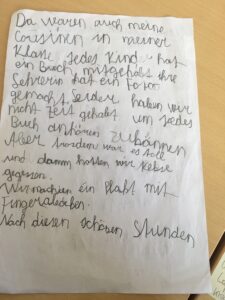 Da waren auch meine
Cousinen in meiner
Klasse Jedes Kind hat
ein Buch mitgehabt ihre
Lehrerin hat ein Foto
gemacht Leider haben wir
nicht Zeit gehabt um jedes
Buch anhören zu können
Aber trozdem war es toll
und dann hatten wir Kekse
gegessen.
Wir machten ein Blatt mit
Fingerabdrücken.
Nach diesen schönen Stunden